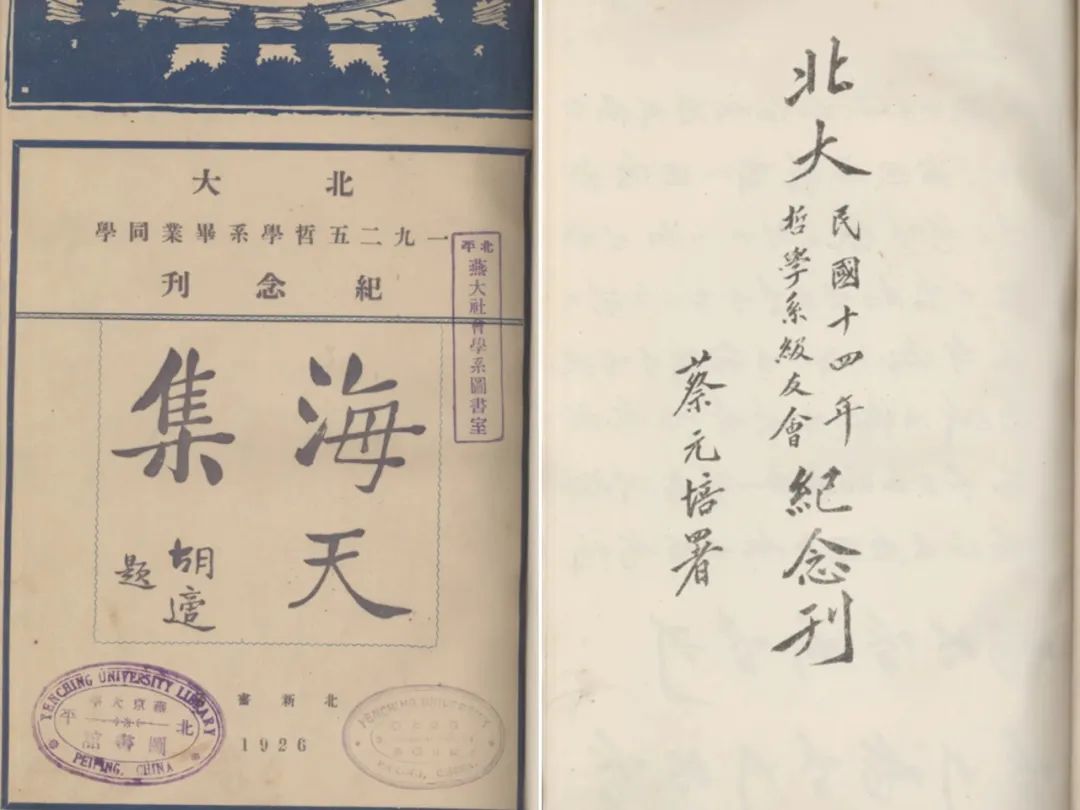 北大
一九二五哲學系畢業同學
紀念刊
海天
集
胡適
題
北平
燕大社會學系圖書室
YENCHING UNIVERSITY LIBRARY
燕京大學
北平
圖書館
PEIPING, CHINA
北新書
1926
YENCHING UNIVERSITY
北大
民國十四年
哲學系級友會
紀念刊
蔡元培署